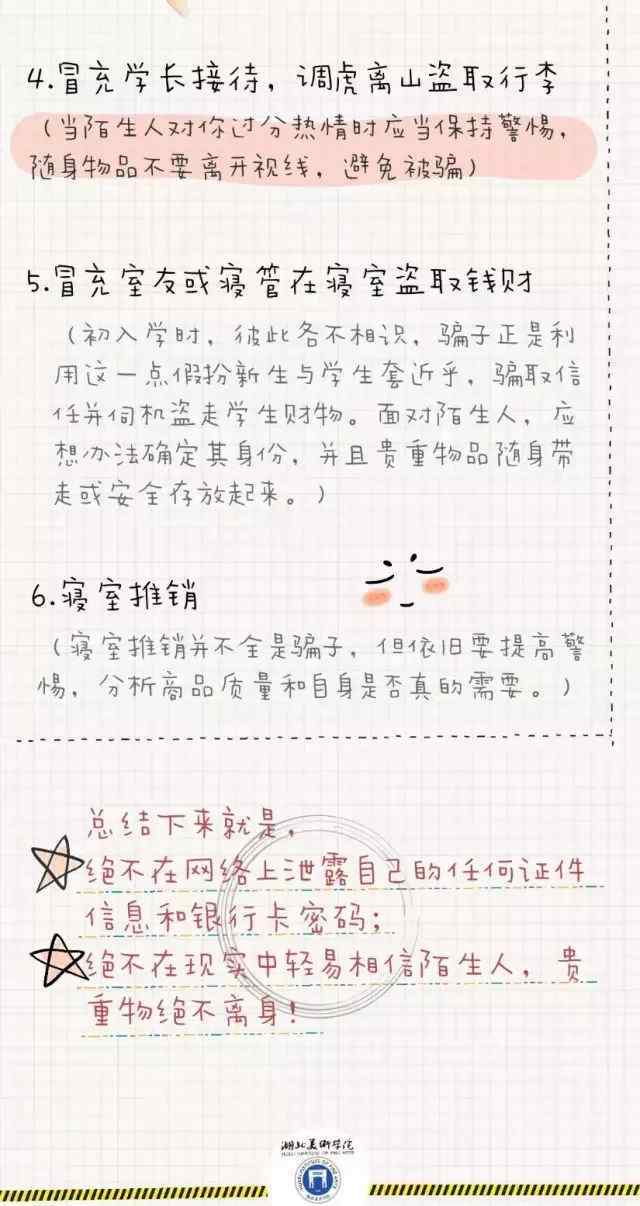 4.冒充学长接待，调虎离山盗取行李
（当陌生人对你过分热情时应当保持警惕，
随身物品不要离开视线，避免被骗）
5.冒充室友或寝管在寝室盗取钱财
（初入学时，彼此各不相识，骗子正是利
用这一点假扮新生与学生套近乎，骗取信
任并伺机盗走学生财物。面对陌生人，应
想办法确定其身份，并且贵重物品随身带
走或安全存放起来。）
6.寝室推销
（寝室推销并不全是骗子，但依旧要提高警
惕，分析商品质量和自身是否真的需要。）
总结下来就是，
绝不在网络上泄露自己的任何证件
信息和银行卡密码；
绝不在现实中轻易相信陌生人，贵
重物绝不离身！
湖北美术学院
HUBEI INSTITUTE OF FINE ARTS